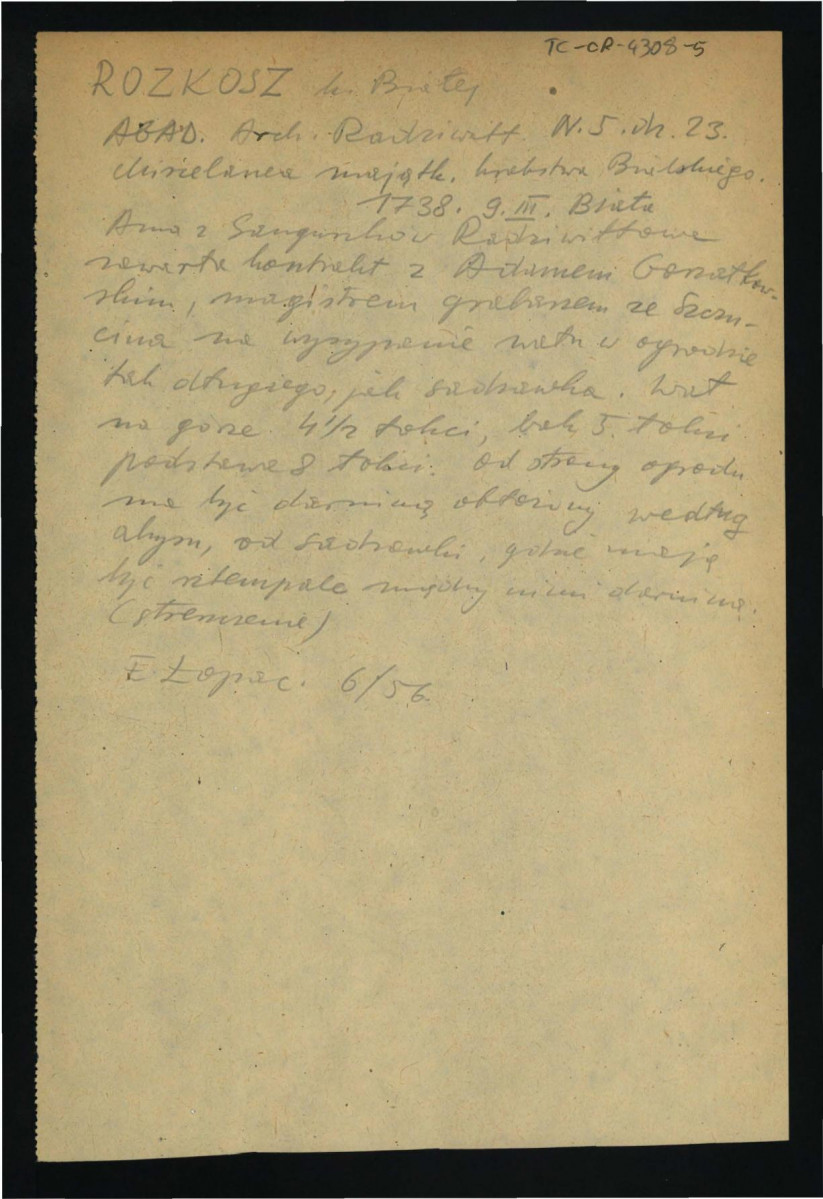 TC-CR-4308-5
ROZKOSZ k. Białej
AGAD. Arch. Radziwiłł. N.5. dz. 23.
Miscelanea majątk. hrabstwa Bialskiego.
1738. 9.III. Biała
Anna z Sanguszków Radziwiłłowa
zawarła kontrakt z Adamem
skim, magistrem grabarzem ze Szczu-
cina na wysypanie wału w ogrodzie
tak długiego, jak sadzawka. Wał
na górze 4 1/2 łokci, bok 5. łokci
podstawa 8 łokci. Od strony ogrodu
ma być darniną obłożony według
abrysu, od sadzawki, gdzie mają
być między nimi darniną.
(streszczenie)
E. Łopac. 6/56